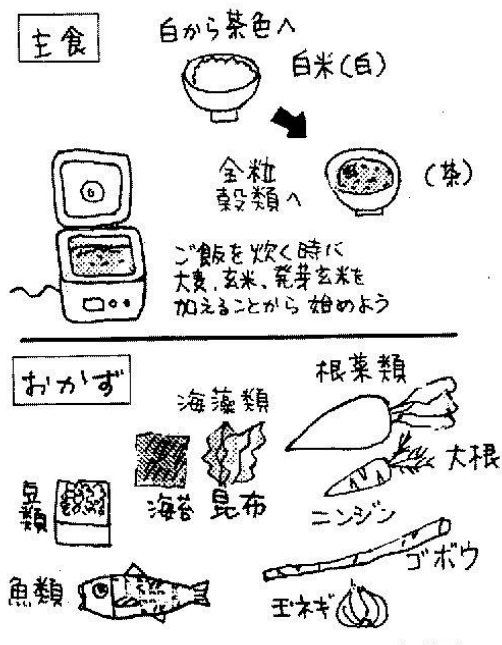 主食
白から茶色へ
白米(白)
全粒
穀類へ
(茶)
ご飯を炊く時に
大麦、玄米、発芽玄米を
加えることから始めよう
おかず
海藻類
根菜類
海苔
昆布
大根
ニンジン
豆
類
ゴボウ
魚類
玉ネギ